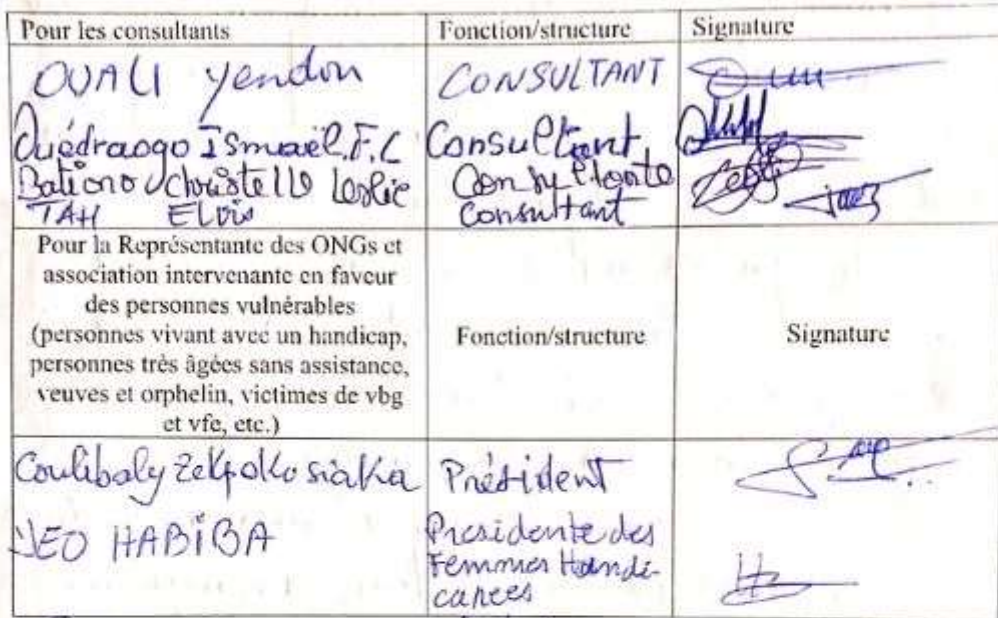 Pour les consultants Fonction/structure Signature
OUALI Yendou CONSULTANT
Ouédraogo Ismaël.F.C Consultant
Bationo Christelle Leslie Consultante
TAH ELVIS Consultant
Pour la Représentante des ONGs et
association intervenante en faveur
des personnes vulnérables
(personnes vivant avec un handicap,
personnes très âgées sans assistance,
veuves et orphelin, victimes de vbg
et vfe, etc.)
Fonction/structure
Signature
Coulibaly siaka Président
HABIBA Presidente des
Femmes Handi-
capées